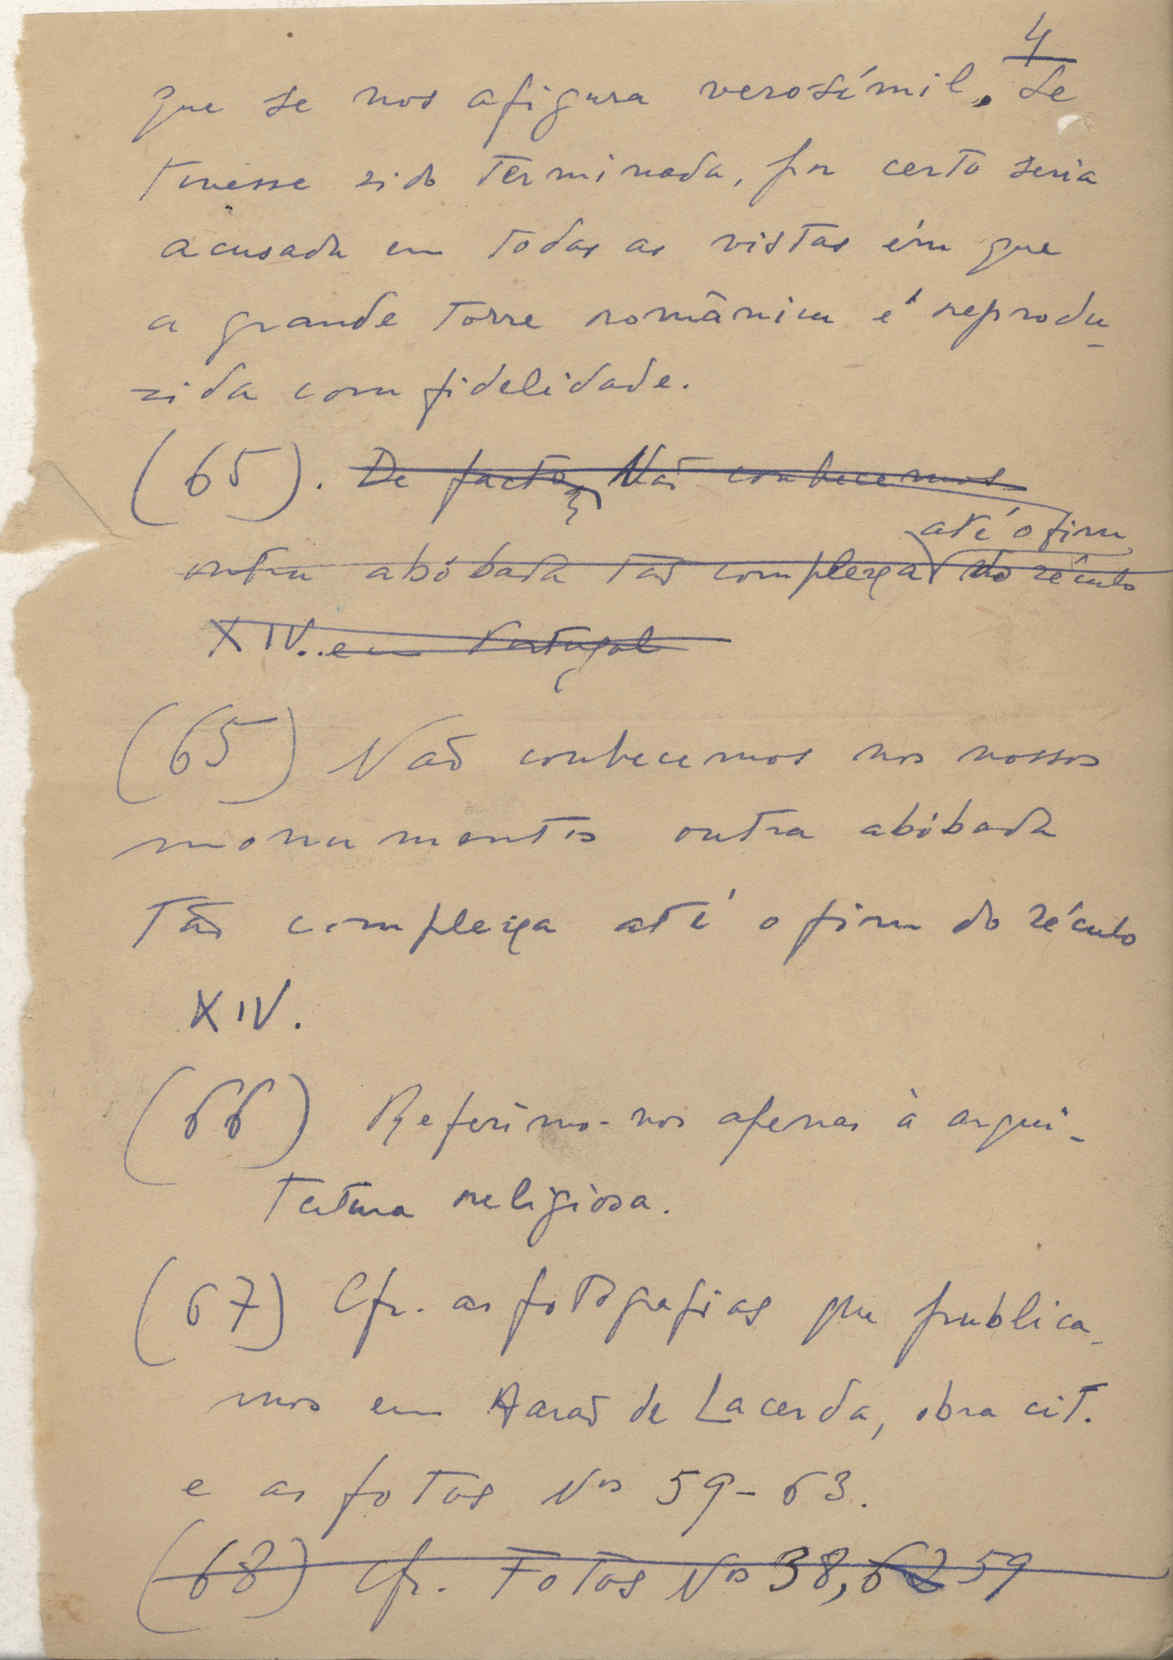 4
que se nos afigura verosímil. Se
tivesse sido terminada, por certo seria
acusada em todas as vistas em que
a grande torre românica é reprodu-
zida com fidelidade.
(65). De facto, Não conhecemos
até o fim
outra abóbada tão complexa do século
XIV. em Portugal
(65) Não conhecemos nos nossos
monumentos outra abóbada
tão complexa até o fim do século
XIV.
(66) Referimo-nos apenas à arqui-
tectura religiosa.
(67) Cfr. as fotografias que publica-
mos em Aarão de Lacerda, obra cit.
e as fotos Nos 59-63.
(68) Cfr. Fotos Nos 38, 62 59